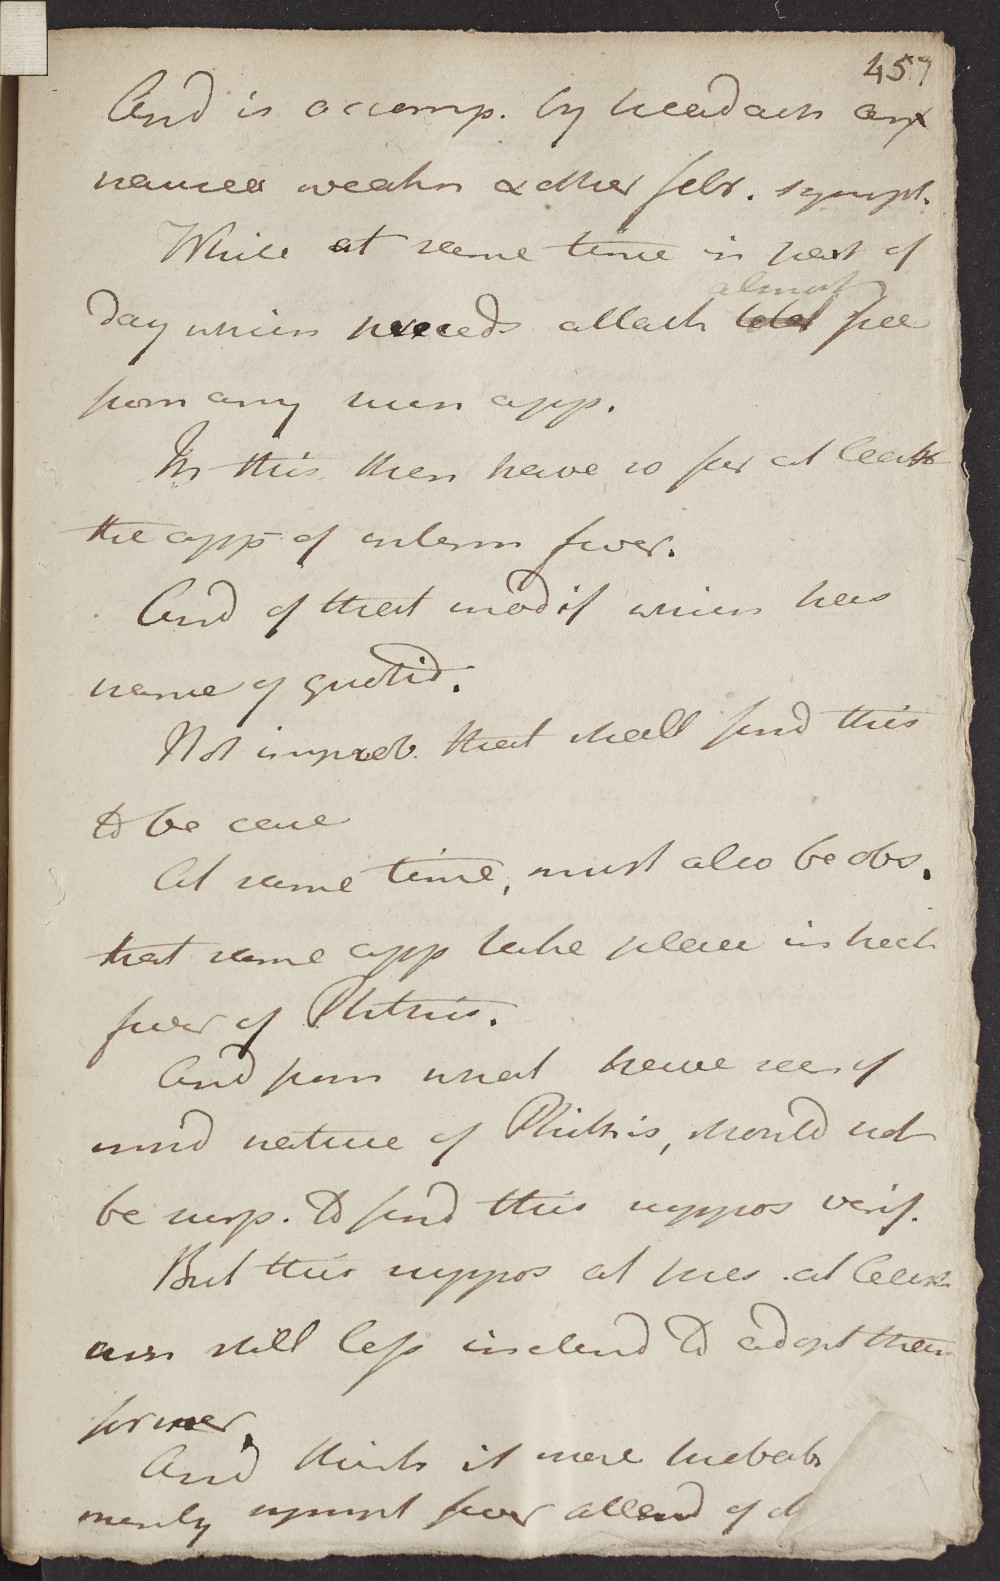 457
And is accomp. by headach anx
nausea weakn & other febr. sympt.
While at same time in part of
almost
day which preceeds attack total free
from any such app.
In this then have so far at least
the app of interm fever.
And of that modif which has
name of quotid.
Not improb. that shall find this
to be case
At same time, must also be obs.
that same app take place in hect
fever of Phthisis.
And from what have seen of
mind nature of Phthisis, should not
be surp. to find this suppos verif.
But this suppos at pres. at least
am still less inclend to adopt than
former.
And think it more probab
merely sympt fever attend of d